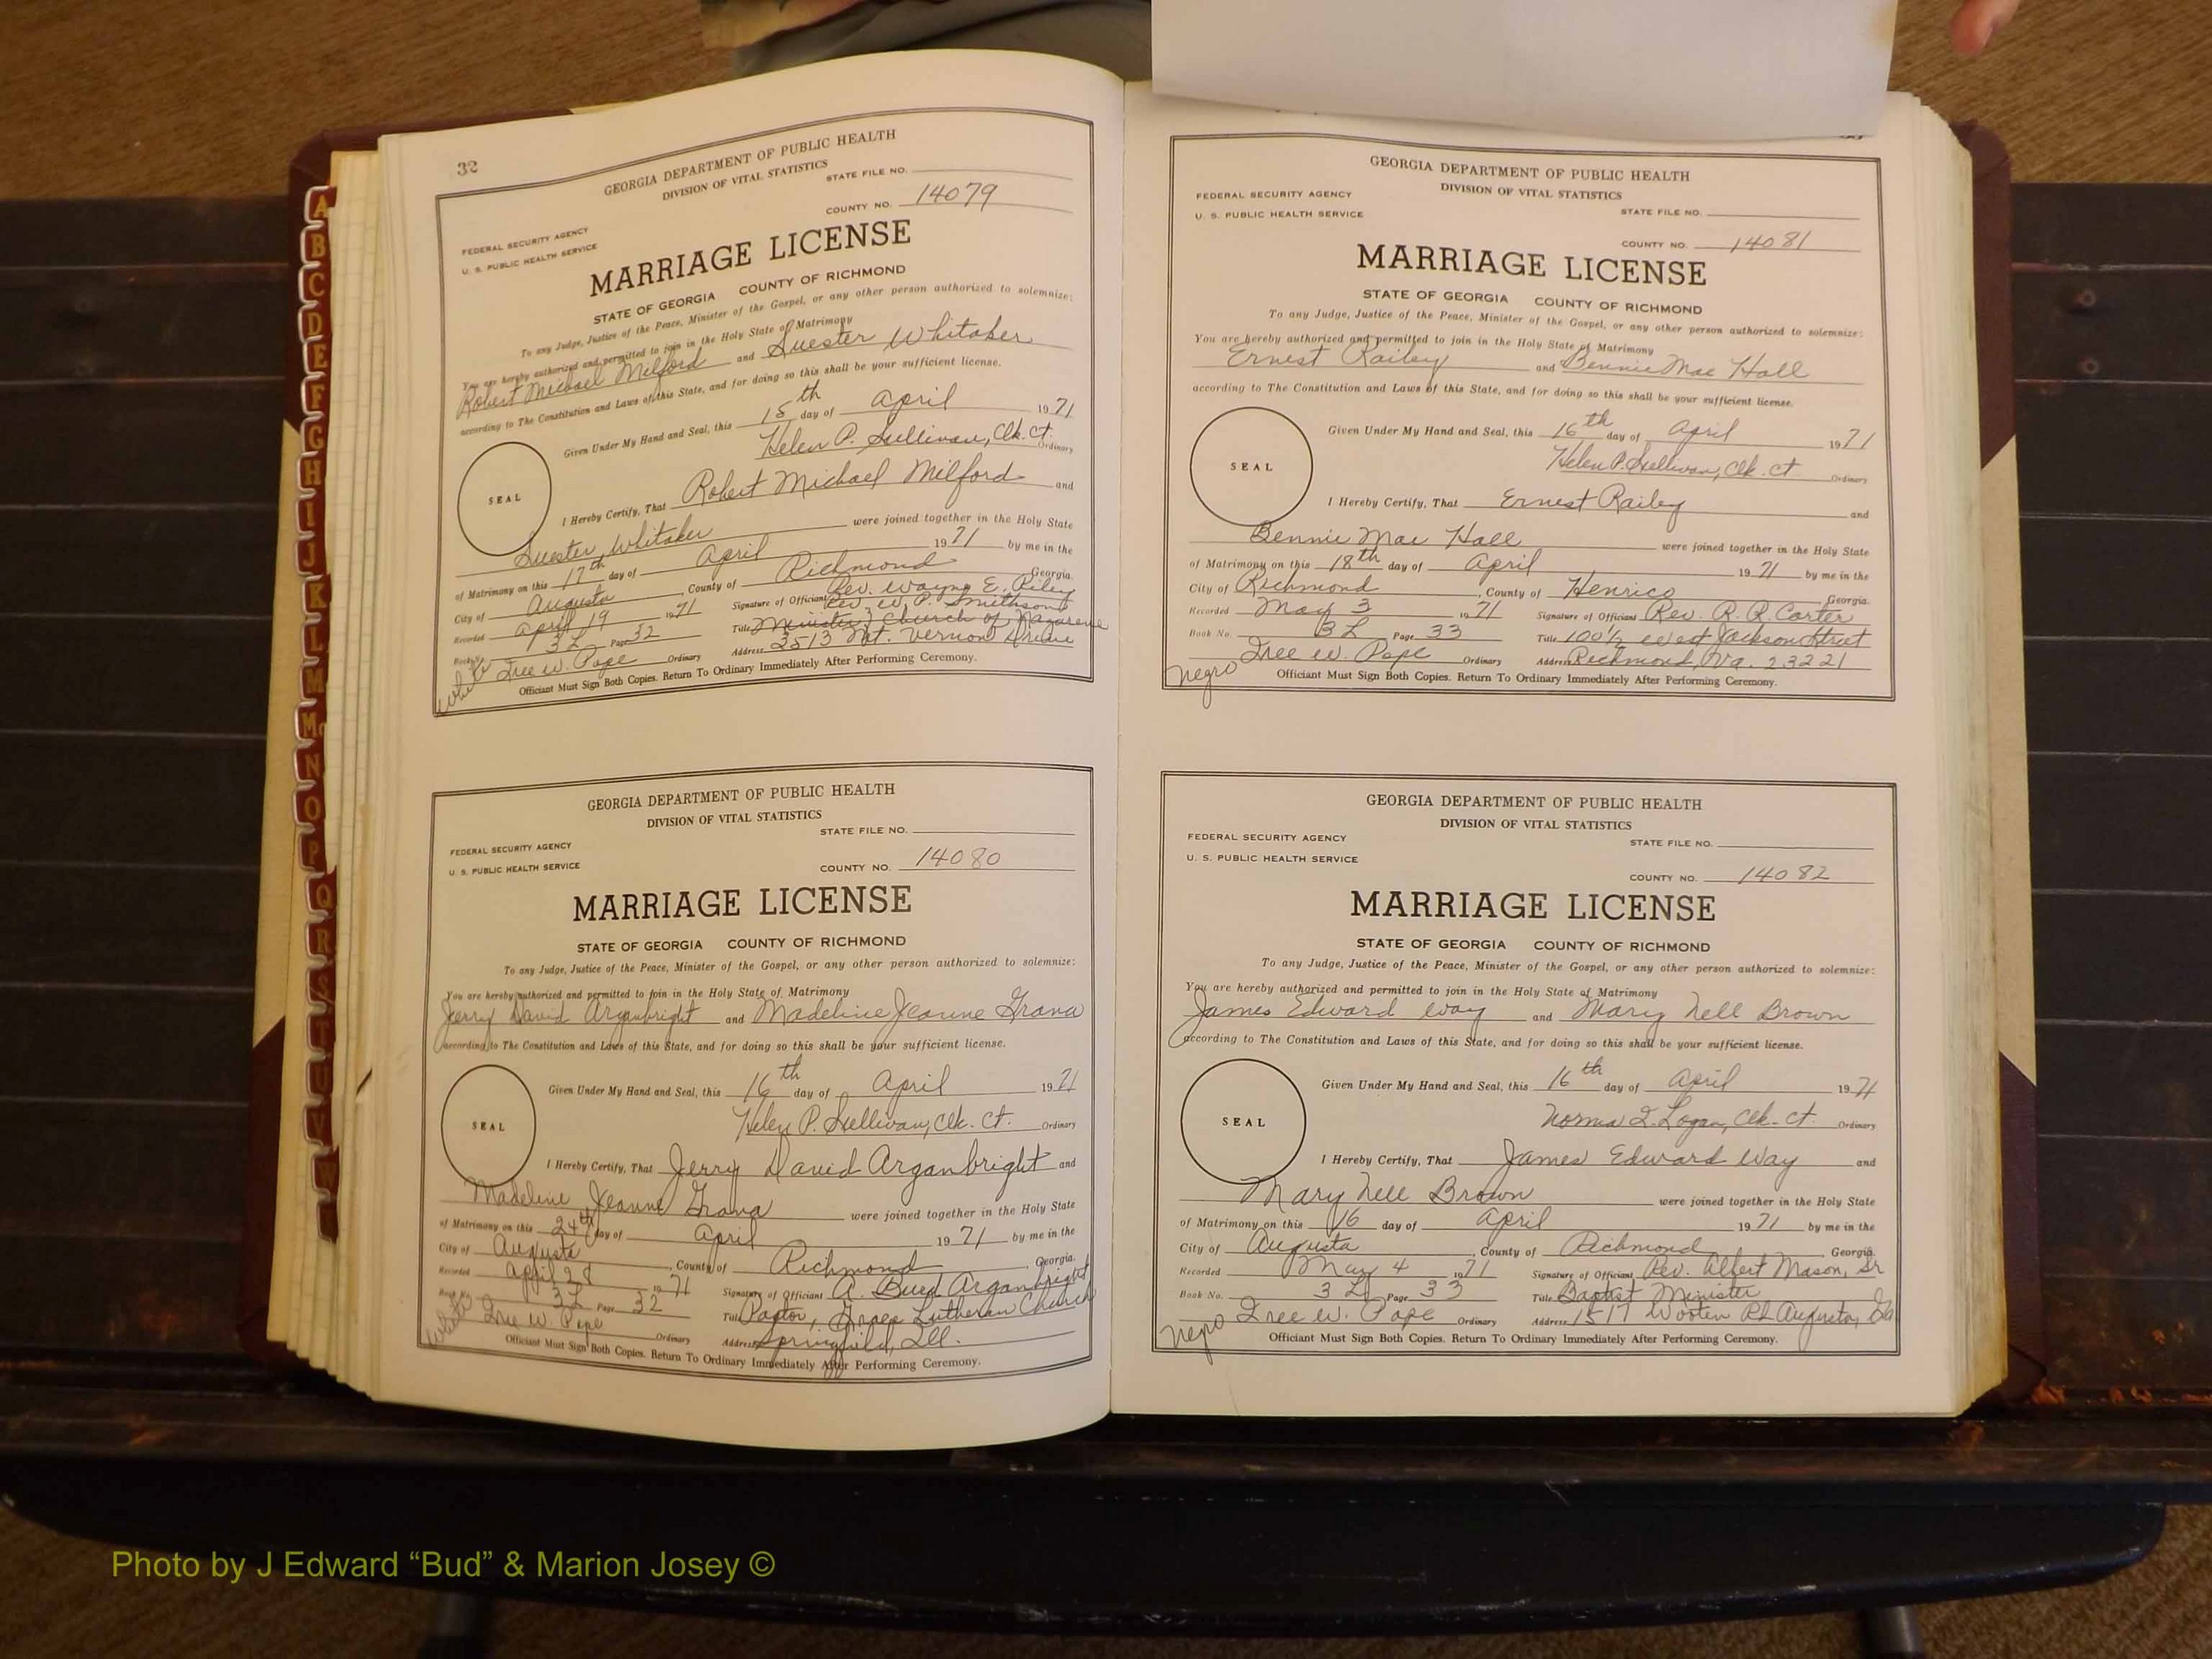 A
B
C
D
E
F
G
H
I
J
K
L
M
Mc
N
O
P
Q
R
S
T
U
V
W
32
GEORGIA DEPARTMENT OF PUBLIC HEALTH
DIVISION OF VITAL STATISTICS
STATE FILE NO.
COUNTY NO. 14079
FEDERAL SECURITY AGENCY
U. S. PUBLIC HEALTH SERVICE
MARRIAGE LICENSE
STATE OF GEORGIA COUNTY OF RICHMOND
To any Judge, Justice of the Peace, Minister of the Gospel, or any other person authorized to solemnize:
You are hereby authorized and permitted to join in the Holy State of Matrimony
Robert Michael Milford and Suester Whitaker
according to The Constitution and Laws of this State, and for doing so this shall be your sufficient license.
Given Under My Hand and Seal, this 15th day of April 1971
Helen P. Sullivan, Clk. Ct. Ordinary
SEAL
I Hereby Certify, That Robert Michael Milford and
Suester Whitaker were joined together in the Holy State
of Matrimony on this 17th day of April 1971 by me in the
City of Augusta, County of Richmond Georgia.
Recorded April 19 1971 Signature of Officiant Rev. Wayne E. Riley
Rev W. P. Smithson
Book No. 3L Page 32 Title Minister, Church of Nazarene
Tree W. Pope Ordinary Address 3513 Mt. Vernon Drive
White
Officiant Must Sign Both Copies. Return To Ordinary Immediately After Performing Ceremony.
GEORGIA DEPARTMENT OF PUBLIC HEALTH
DIVISION OF VITAL STATISTICS
STATE FILE NO.
FEDERAL SECURITY AGENCY
U. S. PUBLIC HEALTH SERVICE
COUNTY NO. 14080
MARRIAGE LICENSE
STATE OF GEORGIA COUNTY OF RICHMOND
To any Judge, Justice of the Peace, Minister of the Gospel, or any other person authorized to solemnize:
You are hereby authorized and permitted to join in the Holy State of Matrimony
Jerry David Arganbright and Madeline Jeanne Grana
according to The Constitution and Laws of this State, and for doing so this shall be your sufficient license.
Given Under My Hand and Seal, this 16th day of April 1971
Helen P. Sullivan, Clk. Ct. Ordinary
SEAL
I Hereby Certify, That Jerry David Arganbright and
Madeline Jeanne Grana were joined together in the Holy State
of Matrimony on this 24th day of April 1971 by me in the
City of Augusta, County of Richmond, Georgia.
Recorded April 28 1971 Signature of Officiant A. Burd Arganbright
Book No. 3L Page 32 Title Pastor, Grace Lutheran Church
Tree W. Pope Ordinary Address Springfield, Ill.
White
Officiant Must Sign Both Copies. Return To Ordinary Immediately After Performing Ceremony.
GEORGIA DEPARTMENT OF PUBLIC HEALTH
DIVISION OF VITAL STATISTICS
FEDERAL SECURITY AGENCY
U. S. PUBLIC HEALTH SERVICE
STATE FILE NO.
COUNTY NO. 14081
MARRIAGE LICENSE
STATE OF GEORGIA COUNTY OF RICHMOND
To any Judge, Justice of the Peace, Minister of the Gospel, or any other person authorized to solemnize:
You are hereby authorized and permitted to join in the Holy State of Matrimony
Ernest Railey and Bennie Mae Hall
according to The Constitution and Laws of this State, and for doing so this shall be your sufficient license.
Given Under My Hand and Seal, this 16th day of April 1971
Helen P. Sullivan, Clk. Ct Ordinary
SEAL
I Hereby Certify, That Ernest Railey and
Bennie Mae Hall were joined together in the Holy State
of Matrimony on this 18th day of April 1971 by me in the
City of Richmond, County of Henrico Georgia.
Recorded May 3 1971 Signature of Officiant Rev. R. R. Carter
Book No. 3L Page 33 Title 100 1/2 West Jackson Street
Tree W. Pope Ordinary Address Richmond, Va. 23221
Negro
Officiant Must Sign Both Copies. Return To Ordinary Immediately After Performing Ceremony.
GEORGIA DEPARTMENT OF PUBLIC HEALTH
DIVISION OF VITAL STATISTICS
FEDERAL SECURITY AGENCY
U. S. PUBLIC HEALTH SERVICE
STATE FILE NO.
COUNTY NO. 14082
MARRIAGE LICENSE
STATE OF GEORGIA COUNTY OF RICHMOND
To any Judge, Justice of the Peace, Minister of the Gospel, or any other person authorized to solemnize:
You are hereby authorized and permitted to join in the Holy State of Matrimony
James Edward Way and Mary Nell Brown
according to The Constitution and Laws of this State, and for doing so this shall be your sufficient license.
Given Under My Hand and Seal, this 16th day of April 1971
Norma I. Logan, Clk. Ct. Ordinary
SEAL
I Hereby Certify, That James Edward Way and
Mary Nell Brown were joined together in the Holy State
of Matrimony on this 16 day of April 1971 by me in the
City of Augusta, County of Richmond, Georgia.
Recorded May 4 1971 Signature of Officiant Rev. Albert Mason, Sr
Book No. 3L Page 33 Title Baptist Minister
Tree W. Pope Ordinary Address 1517 Wooten Rd Augusta, Ga
Negro
Officiant Must Sign Both Copies. Return To Ordinary Immediately After Performing Ceremony.
Photo by J Edward “Bud” & Marion Josey ©